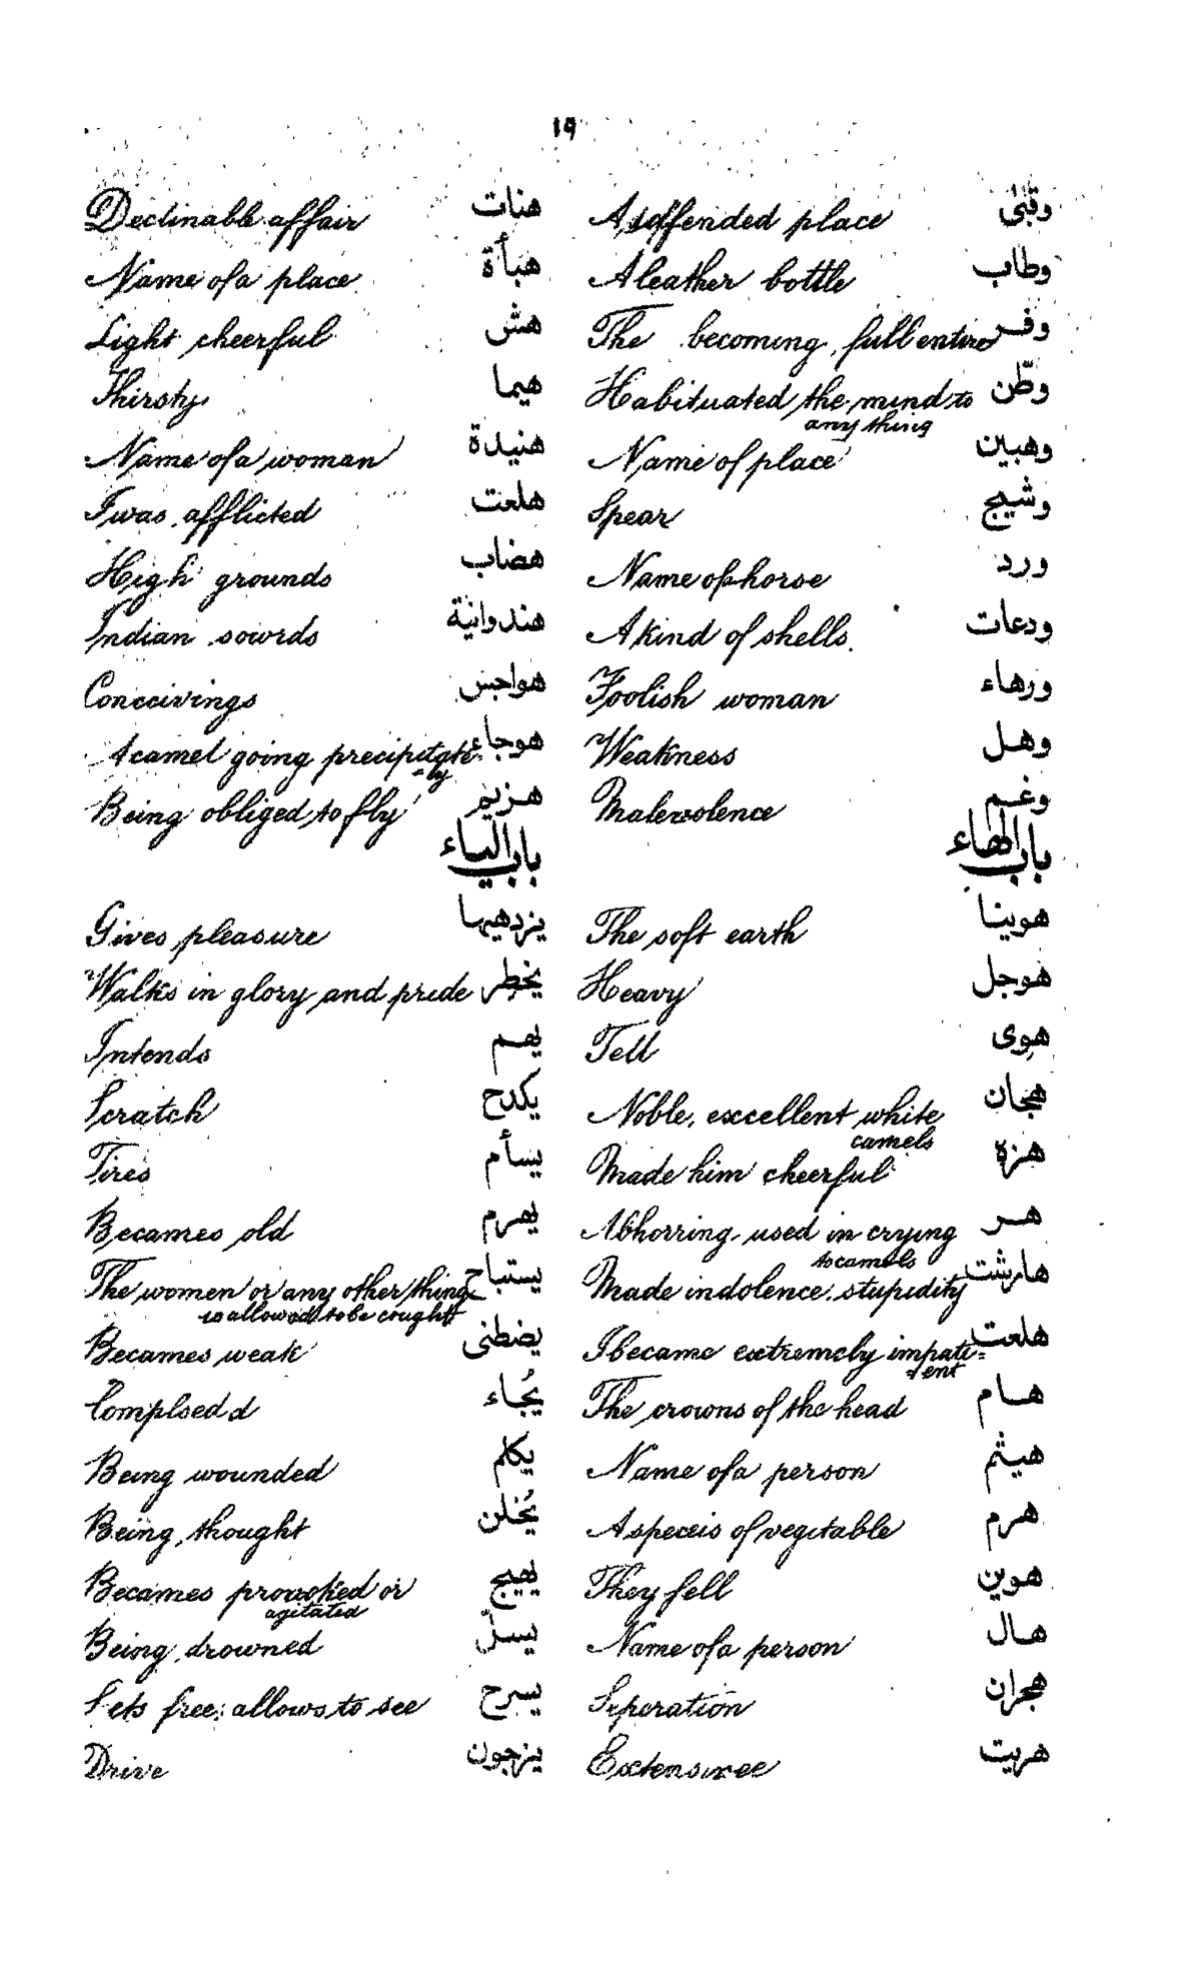 ١٩
وقبى A soffended place
وطاب A leather bottle
وفر The becoming, full entire
وطّن Habituated the mind to
any thing
وهبين Name of place
وشيج Spear
ورد Name of horse
ودعات A kind of shells.
ورهاء Foolish woman
وهل Weakness
وغم Malevolence
باب الهاء
هوينا The soft earth
هوجل Heavy
هوى Fell
هجان Noble, excellent white
camels
هزه Made him cheerful
هر Abhorring, used in crying
to camels
هارشت Made indolence, stupidity
هلعت I became extremely impati=
ent
هام The crowns of the head
هيثم Name of a person
هرم A speceis of vegitable
هوين They fell
هال Name of a person
هجران Seperation
هريت Extensivee
هنات Declinable affair
هبأة Name of a place
هش Light cheerful
هيما Thirsty
هنيدة Name of a woman
هلعت I was afflicted
هضاب High grounds
هندوانية Indian sowrds
هواجس Conceivings
هوجاء A camel going precipitate
-ly
هزيم Being obliged to fly
باب الياء
يزدهيها Gives pleasure
يخطر Walks in glory and pride
يهم Intends
يكدح Scratch
يسأم Tires
يهرم Becames old
يستباح The women or any other thing
is allowed to be cought
يضطنى Becames weak
يُجاء
يكلم Being wounded
يُخلن Being thought
يهيج Becames provoked or
agitated
يسل Being drowned
يسرح Sets free, allows to see
يزجون Drive